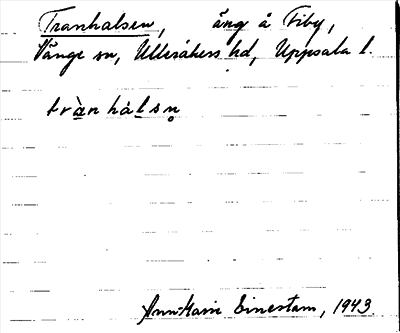 Tranhalsen, äng å Fiby,
Vänge sn, Ulleråkers hd, Uppsala l.
tràn hàlsn̥
Ann-Mari Einestam, 1943.